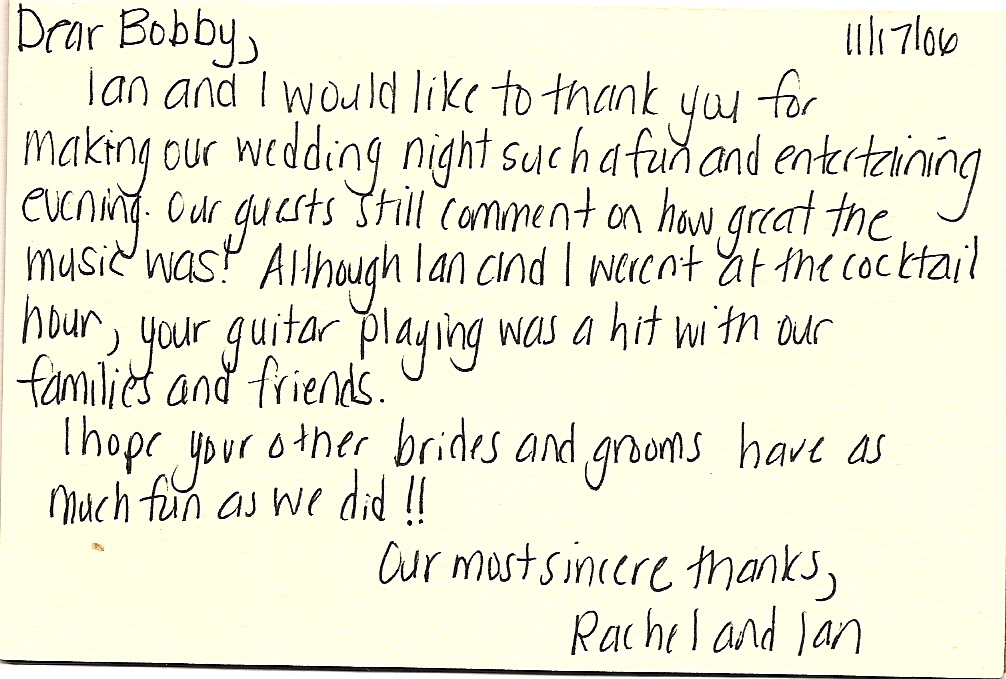 Dear Bobby, 11/17/06
Ian and I would like to thank you for
making our wedding night such a fun and entertaining
evening. Our guests still comment on how great the
music was! Although Ian and I weren't at the cocktail
hour, your guitar playing was a hit with our
families and friends.
I hope your other brides and grooms have as
much fun as we did!!
Our most sincere thanks,
Rachel and Ian